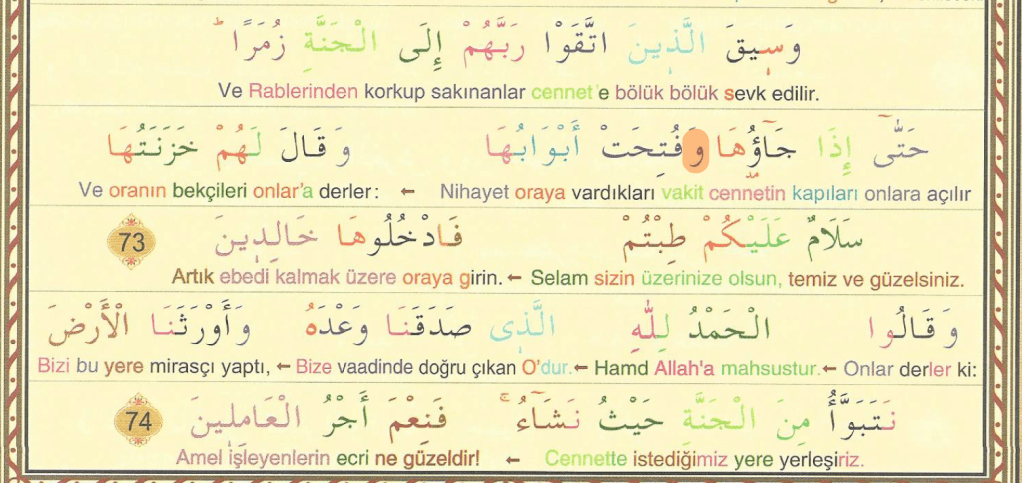 وَسِيقَ الَّذِينَ اتَّقَوْا رَبَّهُمْ إِلَى الْجَنَّةِ زُمَرًا ۖ
Ve Rablerinden korkup sakınanlar cennet'e bölük bölük sevk edilir.
حَتَّىٰٓ إِذَا جَآؤُهَا وَفُتِحَتْ أَبْوَابُهَا وَقَالَ لَهُمْ خَزَنَتُهَا
Nihayet oraya vardıkları vakit cennetin kapıları onlara açılır ← Ve oranın bekçileri onlar'a derler:
سَلَامٌ عَلَيْكُمْ طِبْتُمْ فَادْخُلُوهَا خَالِدِينَ 73
Selam sizin üzerinize olsun, temiz ve güzelsiniz. ← Artık ebedi kalmak üzere oraya girin.
وَقَالُوا الْحَمْدُ لِلَّهِ الَّذِى صَدَقَنَا وَعْدَهُ وَأَوْرَثَنَا الْأَرْضَ
Onlar derler ki: ← Hamd Allah'a mahsustur. ← Bize vaadinde doğru çıkan O'dur. ← Bizi bu yere mirasçı yaptı,
نَتَبَوَّأُ مِنَ الْجَنَّةِ حَيْثُ نَشَآءُ ۚ فَنِعْمَ أَجْرُ الْعَامِلِينَ 74
Cennette istediğimiz yere yerleşiriz. ← Amel işleyenlerin ecri ne güzeldir!